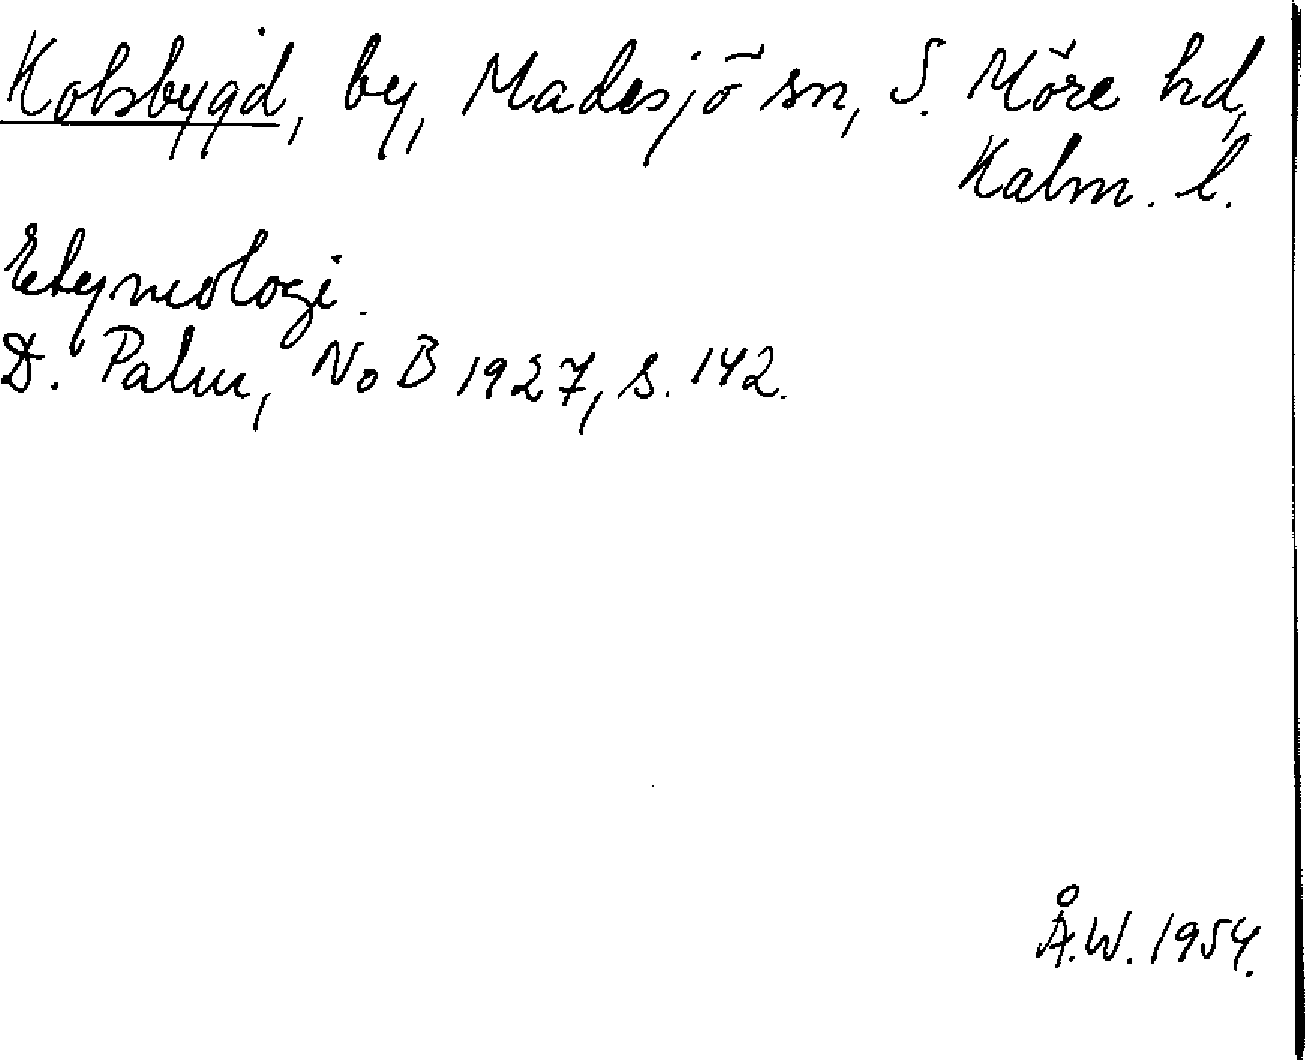 Kolsbygd, by, Madesjö sn, S. Möre hd,
Kalm. l.
Etymologi.
D. Palm, NoB 1927, s. 142.
Å.W. 1954.